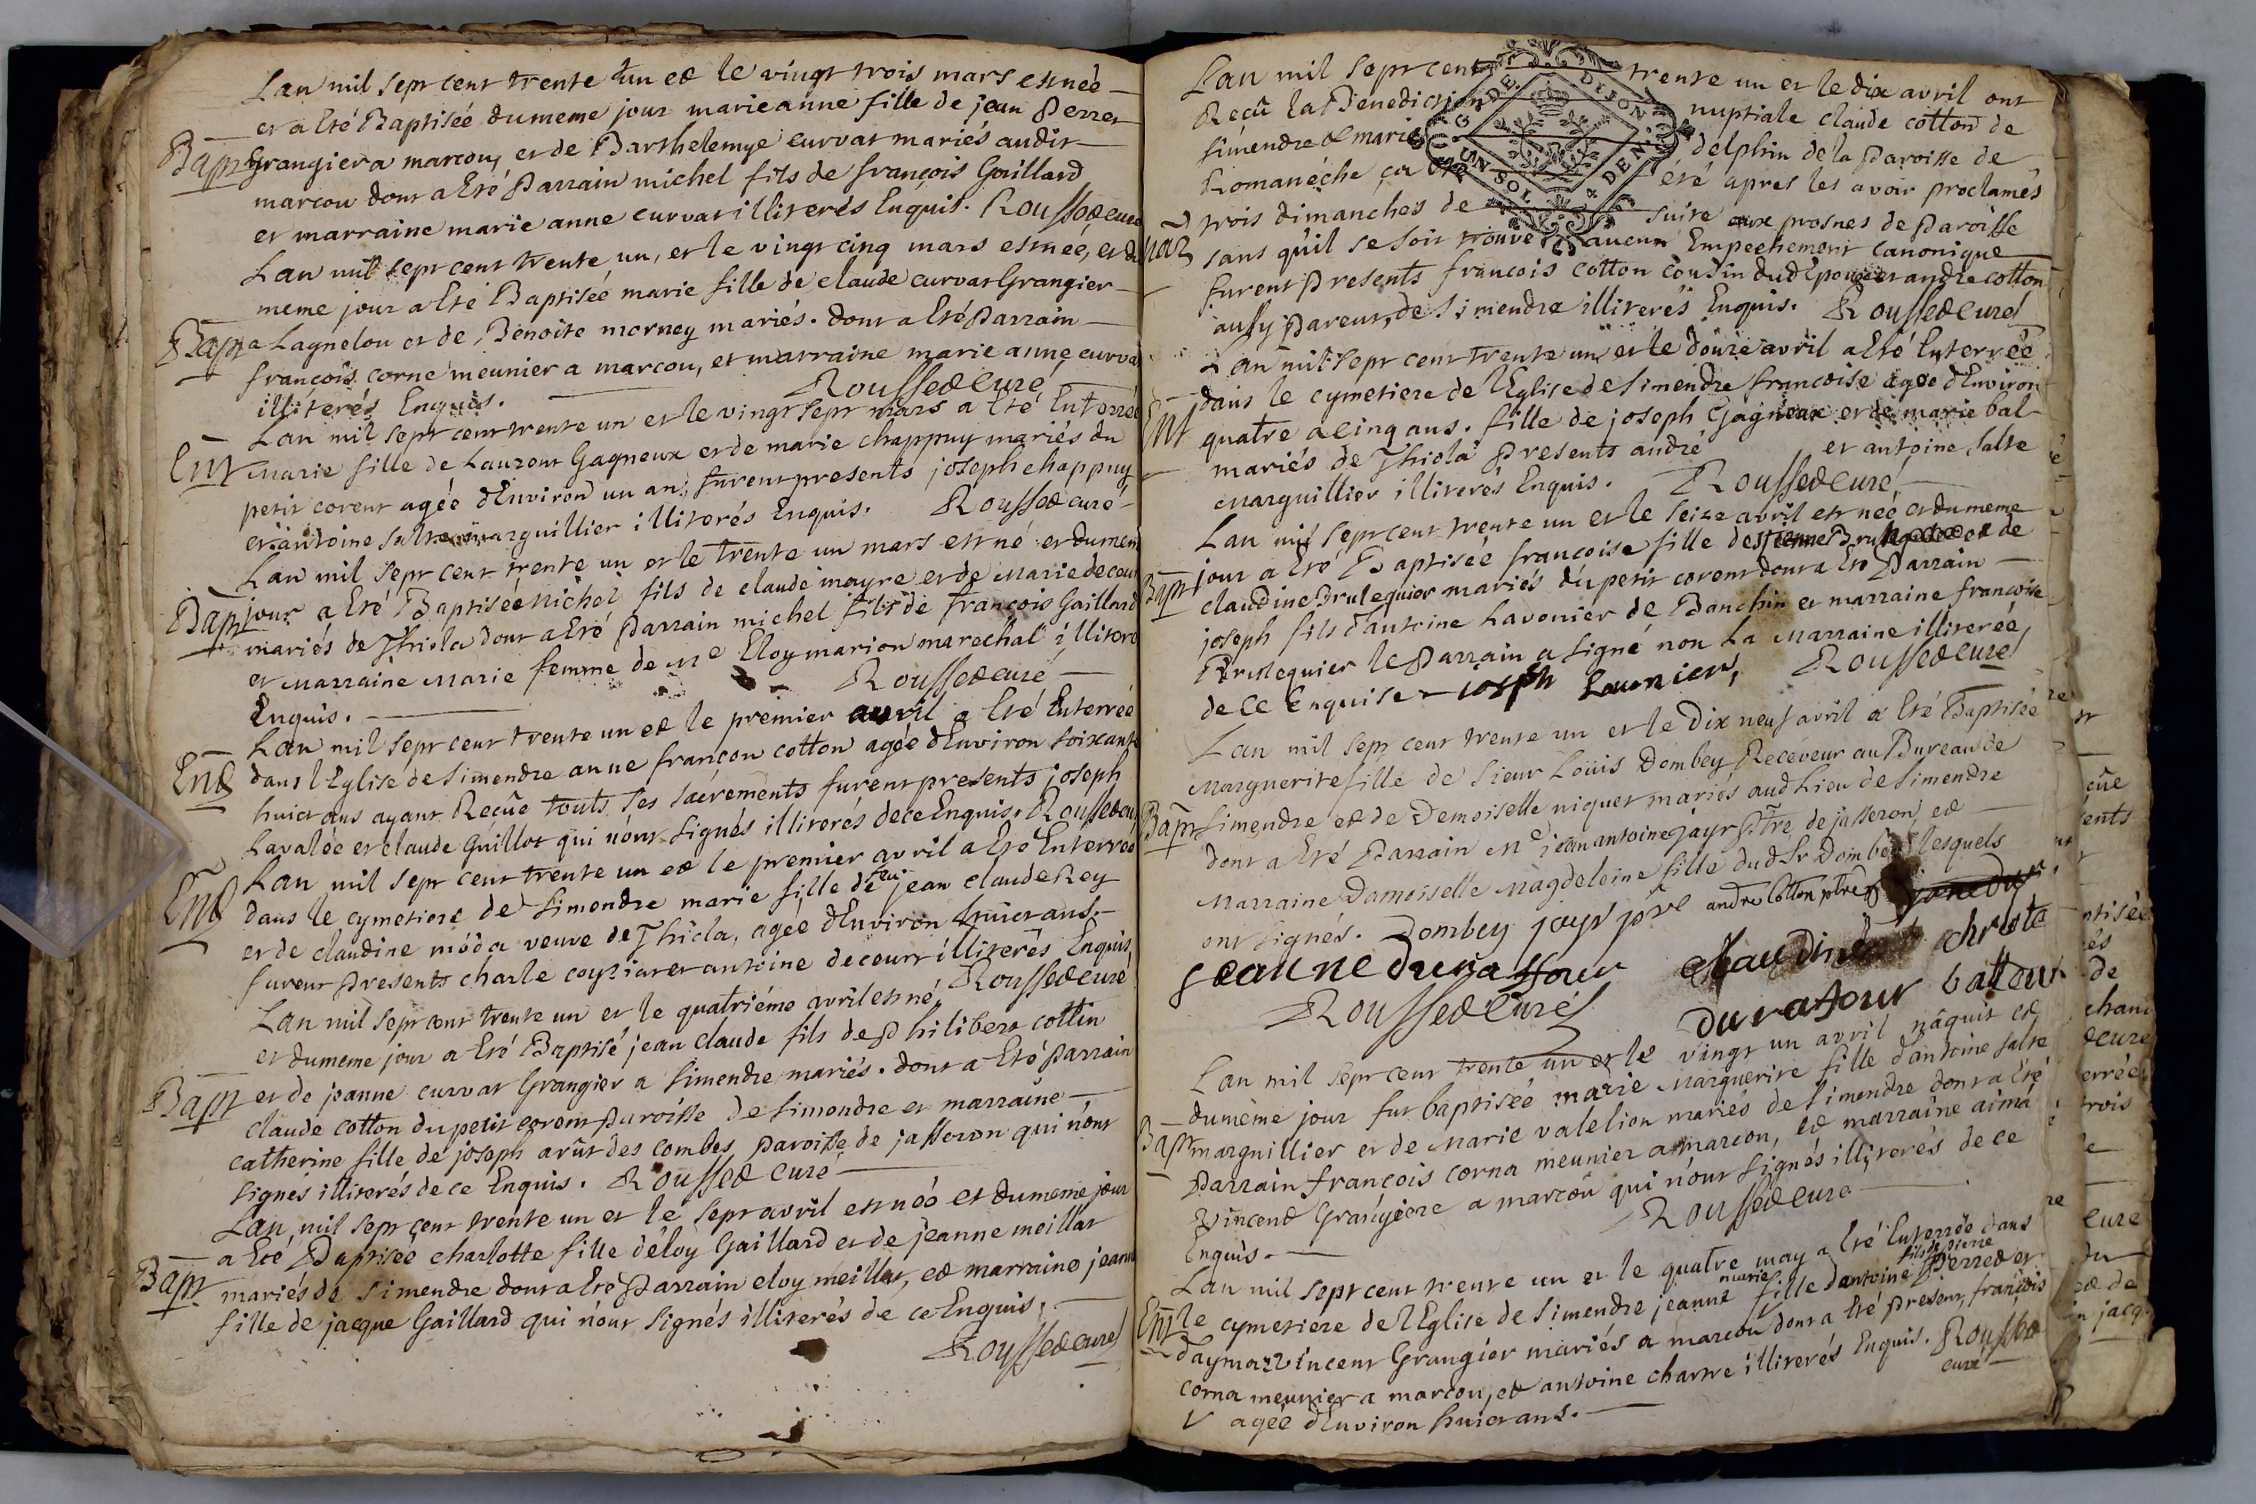 Lan mil sept cent trente un et le vingt trois mars est née
et a Eté Baptisée dumeme jour marieanne fille de jean Perret
Bapt Grangier a marcou, et de Barthelemye curvat mariés audit
marcou dont a Eté Parrain michel fils de françois Gaillard
et marraine marie anne curvat illiterés Enquis. Roussed curé
Lan mil sept cent trente un, et le vingt cinq mars est née, et du
meme jour a Eté Baptisée marie fille de claude curvat Grangier
Bapt a Lagnelou et de Benoite morney mariés. dont a Eté Parrain
françois corne meunier a marcou, et marraine marie anne curvat
illiterés Enquis. Roussed curé
Lan mil sept cent trente un et le vingt sept mars a Eté Enterrée
Ent marie fille de Laurent Gagneux et de marie chappuy mariés du
petit corent agée dEnviron un an, furent presents joseph chappuy
et antoine salve marguillier illiterés Enquis. Roussed curé
Lan mil sept cent trente un et le trente un mars est né et dumeme
Bapt jour a Eté Baptisée Michel fils de claude mayre et de Marie decour
mariés de Thiola dont a Eté Parrain michel fils de françois Gaillard
et Marraine Marie femme de Me Eloy marion marechal illiteré
Enquis. Roussed curé
Lan mil sept cent trente un et le premier avril a Eté Enterrée
Ent dans lEglise de simendre anne françon cotton agée dEnviron soixante
huict ans ayant Reçûe touts ses sacrements furent presents joseph
Lavalée et claude Guillot qui n'ont signés illiterés de ce Enquis. Roussed curé
Lan mil sept cent trente un et le premier avril a Eté Enterrée
Ent dans le cymetiere de simendre marie fille de feu jean claude Rey
et de claudine moda veuve de Thiola, agée dEnviron huict ans.
furent Presents charle coyziat et antoine decourt illiterés Enquis
Roussed curé
Lan mil sept cent trente un et le quatriéme avril est né
et dumeme jour a Eté Baptisé jean claude fils de Philibert cottin
Bapt et de jeanne curvat Grangier a simendre mariés. dont a Eté Parrain
claude cotton du petit corent Paroisse de simendre et marraine
catherine fille de joseph arût des combes paroisse de jasseron qui n'ont
signés illiterés de ce Enquis. Roussed curé
Lan mil sept cent trente un et le sept avril est née et dumeme jour
a Eté Baptisée charlotte fille déloy Gaillard et de jeanne meillat
Bapt mariés de simendre dont a Eté Parrain eloy meillat, et marraine jeanne
fille de jacque Gaillard qui n'ont signés illiterés de ce Enquis.
Roussed curé
Lan mil sept cent trente un et le dix avril ont
Reçû la Benediction nuptiale claude cotton de
simendre et marie delphin de la Paroisse de
Romanéche ça eté apres les avoir proclamés
trois dimanches de suite aux prosnes de Paroisse
Mar sans quil se soit trouvé aucun Empechement canonique
furent Presents françois cotton cousin dud Epoux et andre cotton
aussy Parent, de simendre illiterés Enquis. Roussed curé
G. DE. DIJON
UN SOL 4 DEN.
Lan mil sept cent trente un et le douze avril a Eté Enterrée
dans le cymetiere de lEglise de simendre françoise agée dEnviron
Ent quatre a cinq ans. fille de joseph Gagneux et de marie bal
mariés de Thiola Presents andré et antoine salve
Marguillier illiterés Enquis. Roussed curé
Lan mil sept cent trente un et le seize avril est née et dumeme
jour a Eté Baptisée françoise fille de et de
Bapt claudine Brulequier mariés du petit corent dont a Eté Parrain
joseph fils dantoine Lavonier de Banchin et marraine françoise
Brulequier le Parrain a signé non La Marraine illiterée,
de ce Enquise ioseph Lauonier, Roussed curé
Lan mil sept cent trente un et le Dix neuf avril a Eté Baptisée
Marguerite fille de sieur Louis Dombey Receveur au Bureau de
Bapt simendre et de Demoiselle niquet mariés aud Lieu de simendre
dont a Eté Parrain Me jean antoine jayr Ptre de jasseron et
Marraine Damoiselle Magdeleine fille dud Sr Dombey lesquels
ont signés. Dombey jayr ptre andre Cotton ptre
Jeanne durafour claudine christe
Roussed curé durafour battou
Lan mil sept cent trente un et le vingt un avril nâquit et
dumême jour fut baptisée marie Marguerite fille d'antoine salve
Bapt marguillier et de Marie valelion mariés de simendre dont a Eté
Parrain françois corna meunier a marcou, et marraine aima
Vincend Grangiere a marcou qui n'ont signés illiterés de ce
Enquis. Roussed curé
Lan mil sept cent trente un et le quatre may a Eté Enterrée dans
Ent le cymetiere de lEglise de simendre jeanne marie fille dantoine fils de pierre Perred et
daymaz Vincent Grangier mariés a marcou dont a Eté Present françois
corna meunier a marcou, et antoine chartre illiterés Enquis. Roussed
curé
V agée dEnviron huict ans.